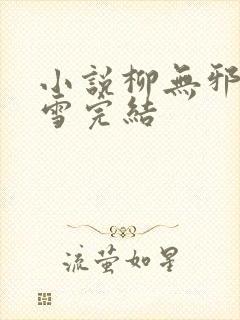 小說柳無邪
雪完結
流萤如星